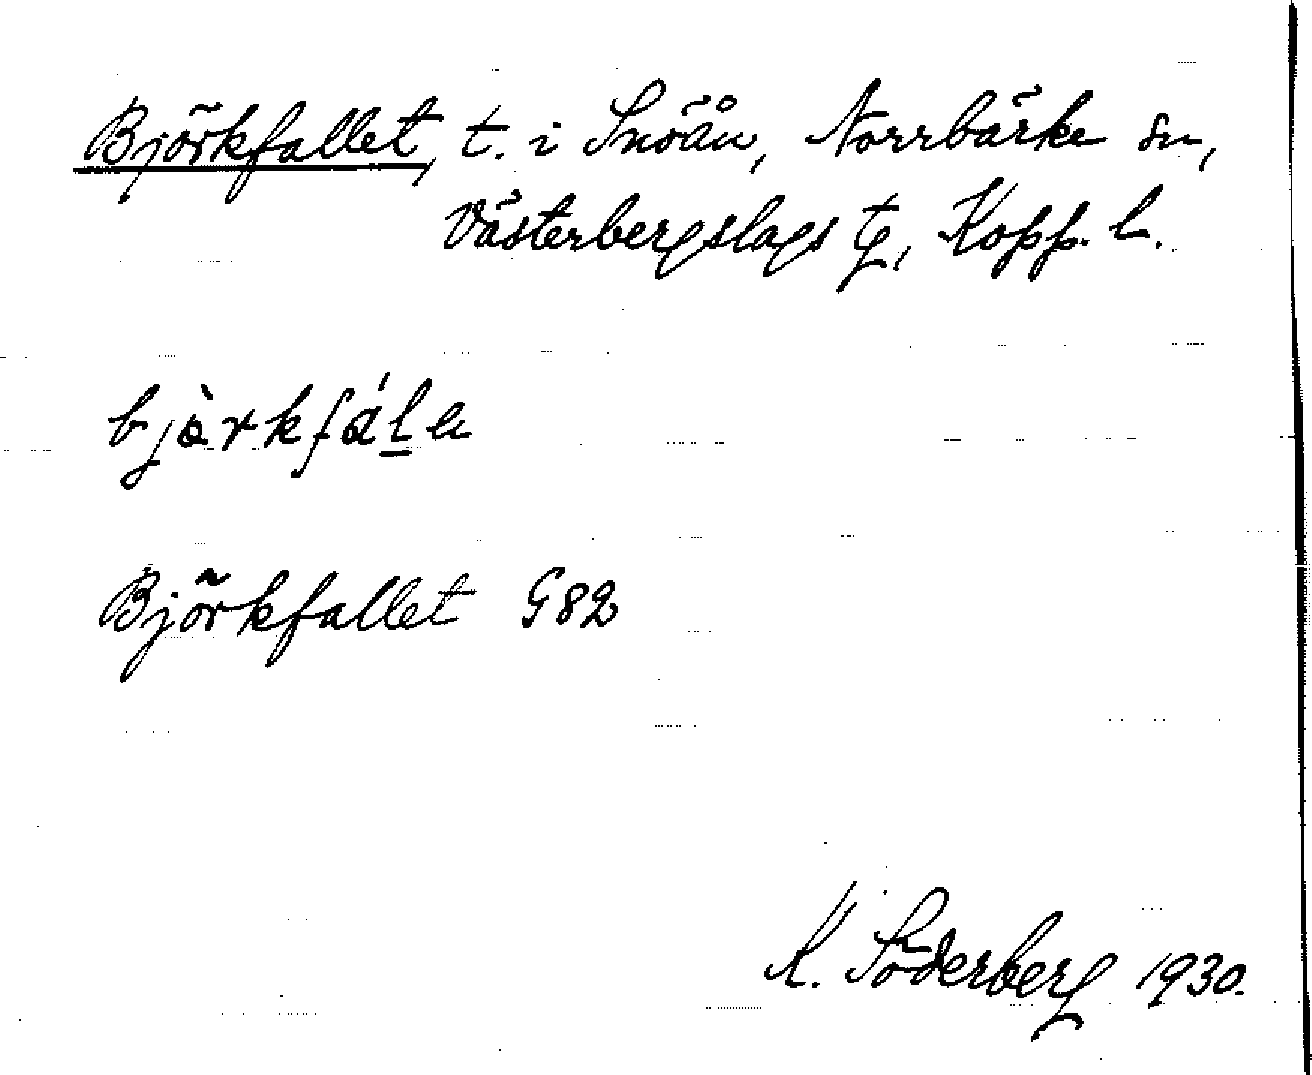 Björkfallet, t. i Snöån, Norrbärke sn,
Västerbergslags tg, Kopp. l.
bjòrkfáḻa
Björkfallet G82
K. Söderberg 1930.